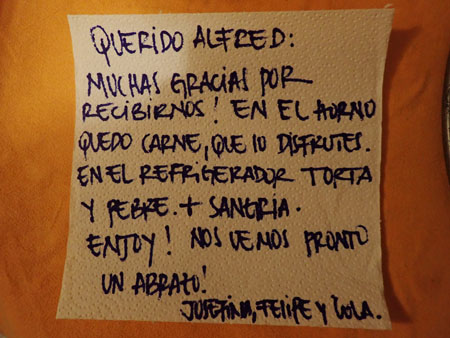 QUERIDO ALFRED:
MUCHAS GRACIAS POR
RECIBIRNOS! EN EL HORNO
QUEDO CARNE, QUE LO DISFRUTES.
EN EL REFRIGERADOR TORTA
Y PEBRE. + SANGRIA.
ENJOY! NOS VEMOS PRONTO
UN ABRAZO!
JOSEFINA, FELIPE Y LOLA.